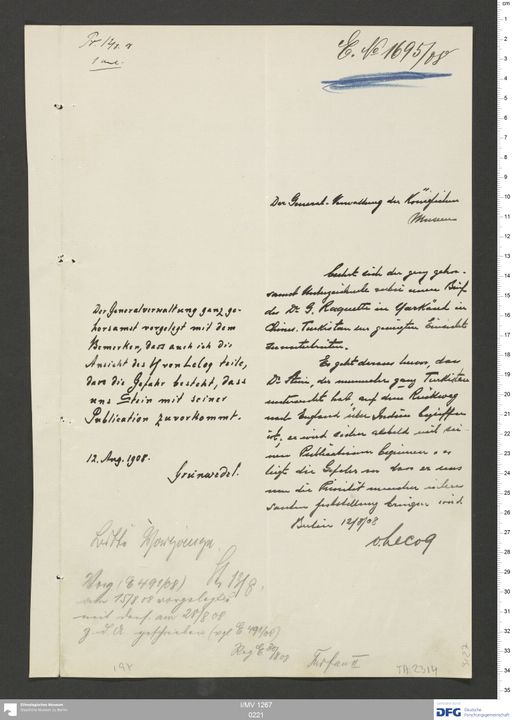 E. No 1695/08
Der General-Verwaltung der Königlichen
Museen
beehrt sich der ganz gehor-
samst Unterzeichnete einen Brief
des Dr. G. Raquette in Yarkänd in
Chines. Turkistan zur geneigten Einsicht
zu unterbreiten.
Es geht daraus hervor, dass
Dr. Stein, der nunmehr ganz Turkistan
untersucht hat, auf dem Rückweg
nach England über Indien begriffen
ist; er wird sicher alsbald mit sei-
nen Publikationen beginnen, es
liegt die Gefahr vor dass er uns
um die Priorität
bringen wird
Berlin 12/8/08
v. Lecoq
Der Generalverwaltung ganz ge-
horsamst vorgelegt mit dem
Bemerken, dass auch ich die
Ansicht des H von Lecoq teile,
dass die Gefahr besteht, dass
uns Stein mit seiner
Publication zuvorkommt.
12. Aug. 1908.
Grünwedel.
Bitte Vorgänge.
18/8.
Vorg (E 491/08)
am 15/8 08 vorgelegt
am 28/8 08
z. d. A. geschrieben (vgl. E 491/08)
Turfan II
TA 2314
Ethnologisches Museum
Staatliche Museen zu Berlin
I/MV 1267
0221
DFG
Deutsche
Forschungsgemeinschaft